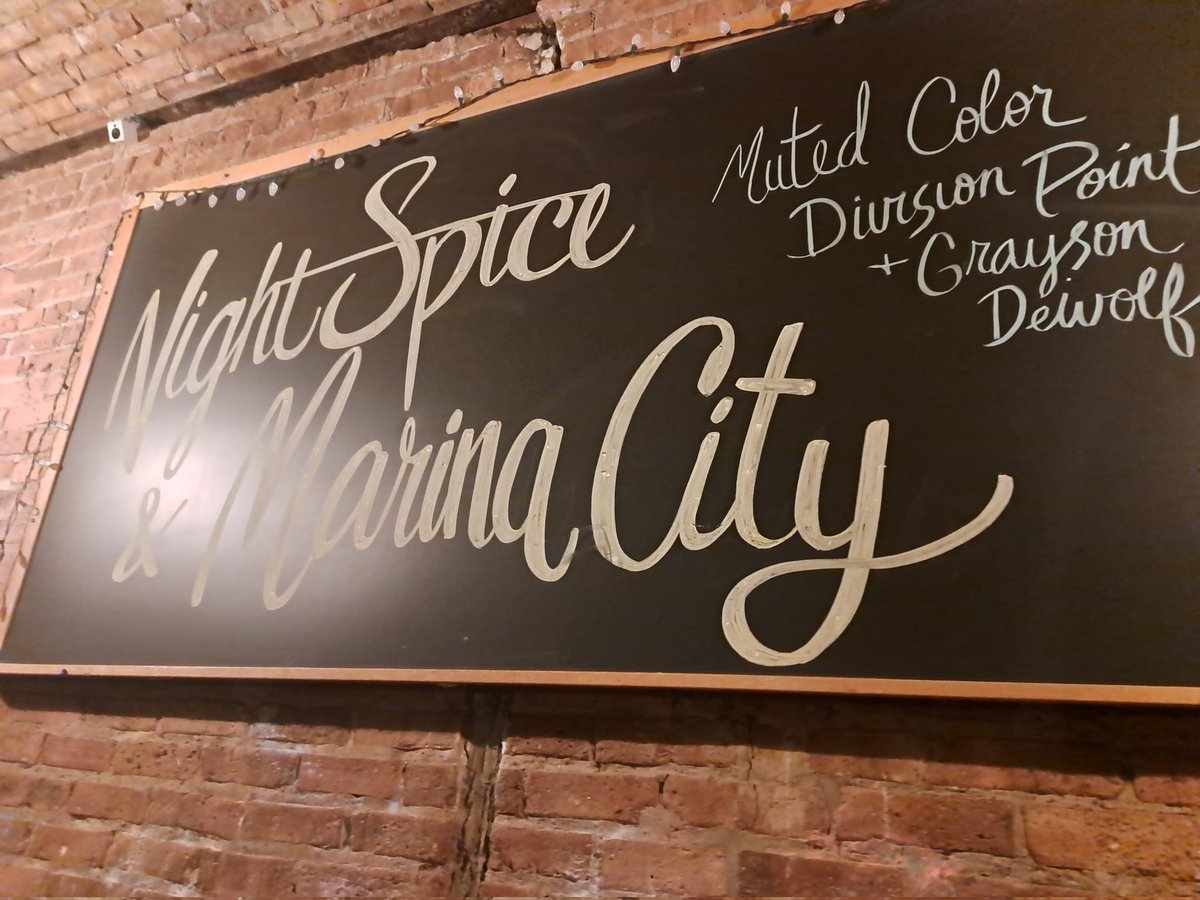 Night Spice
& Marina City
Muted Color
Division Point
+ Grayson
Dewolf